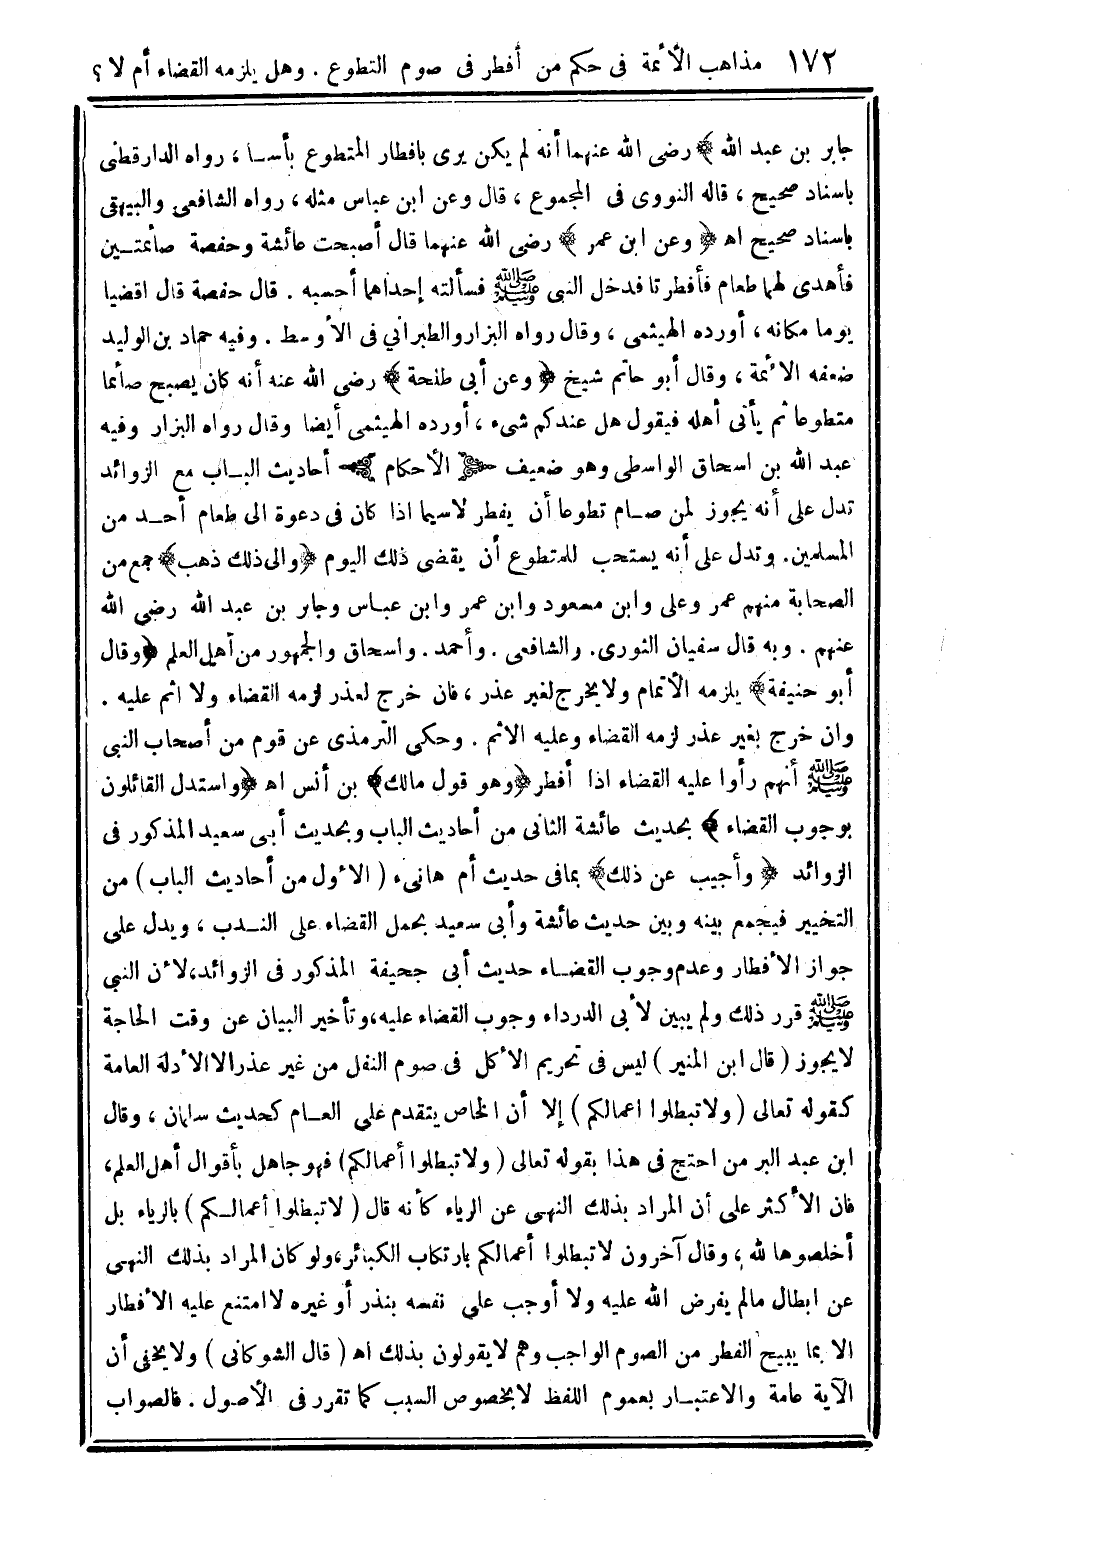 ١٧٢ مذاهب الأئمة فى حكم من أفطر فى صوم التطوع . وهل يلزمه القضاء أم لا ؟
جابر بن عبد الله ﴾ رضى الله عنهما أنه لم يكن يرى بافطار المتطوع بأسا ، رواه الدارقطنى
باسناد صحيح ، قاله النووى فى المجموع ، قال وعن ابن عباس مثله ، رواه الشافعى والبيهقى
باسناد صحيح اه ﴿ وعن ابن عمر ﴾ رضى الله عنهما قال أصبحت عائشة وحفصة صائمتين
فأهدى لهما طعام فأفطرتا فدخل النبى ﷺ فسألته إحداهما أحسبه . قال حفصة قال اقضيا
يوما مكانه ، أورده الهيثمى ، وقال رواه البزار والطبراني فى الأوسط . وفيه حماد بن الوليد
ضعفه الائمة ، وقال أبو حاتم شيخ ﴿ وعن أبى طلحة ﴾ رضى الله عنه أنه كان يصبح صائما
متطوعا ثم يأتى أهله فيقول هل عندكم شىء ، أورده الهيثمى أيضا وقال رواه البزار وفيه
عبد الله بن اسحاق الواسطى وهو ضعيف ﴿ الأحكام ﴾ أحاديث الباب مع الزوائد
تدل على أنه يجوز لمن صام تطوعا أن يفطر لاسيما اذا كان فى دعوة الى طعام أحد من
المسلمين . وتدل على أنه يستحب للمتطوع أن يقضى ذلك اليوم ﴿ والى ذلك ذهب ﴾ جمع من
الصحابة منهم عمر وعلى وابن مسعود وابن عمر وابن عباس وجابر بن عبد الله رضى الله
عنهم . وبه قال سفيان الثورى . والشافعى . وأحمد . واسحاق والجمهور من أهل العلم ﴿ وقال
أبو حنيفة ﴾ يلزمه الأتمام ولا يخرج لغير عذر ، فان خرج لعذر لزمه القضاء ولا اثم عليه .
وان خرج بغير عذر لزمه القضاء وعليه الاثم . وحكى الترمذى عن قوم من أصحاب النبي
ﷺ أنهم رأوا عليه القضاء اذا أفطر ﴿ وهو قول مالك ﴾ بن أنس اه ﴿ واستدل القائلون
بوجوب القضاء ﴾ بحديث عائشة الثانى من أحاديث الباب وبحديث أبى سعيد المذكور فى
الزوائد ﴿ وأجيب عن ذلك ﴾ بمافى حديث أم هانىء ( الاول من أحاديث الباب ) من
التخيير فيجمع بينه وبين حديث عائشة وأبى سعيد بحمل القضاء على الندب ، ويدل على
جواز الأفطار وعدم وجوب القضاء حديث أبى جحيفة المذكور فى الزوائد ، لان النبي
ﷺ قرر ذلك ولم يبين لأبى الدرداء وجوب القضاء عليه ، وتأخير البيان عن وقت الحاجة
لايجوز ( قال ابن المنير ) ليس فى تحريم الاكل فى صوم النفل من غير عذر الا الادلة العامة
كقوله تعالى ( ولا تبطلوا اعمالكم ) إلا أن الخاص يتقدم على العام كحديث سلمان ، وقال
ابن عبد البر من احتج فى هذا بقوله تعالى ( ولا تبطلوا أعمالكم ) فهو جاهل بأقوال أهل العلم ،
فان الأكثر على أن المراد بذلك النهى عن الرياء كأنه قال ( لا تبطلوا أعمالكم ) بالرياء بل
أخلصوها لله ، وقال آخرون لا تبطلوا أعمالكم بارتكاب الكبائر ، ولو كان المراد بذلك النهى
عن ابطال مالم يفرض الله عليه ولا أوجب على نفسه بنذر أو غيره لامتنع عليه الأفطار
الا بما يبيح الفطر من الصوم الواجب وهم لايقولون بذلك اه ( قال الشوكانى ) ولا يخفى أن
الآية عامة والاعتبار بعموم اللفظ لابخصوص السبب كما تقرر فى الأصول . فالصواب